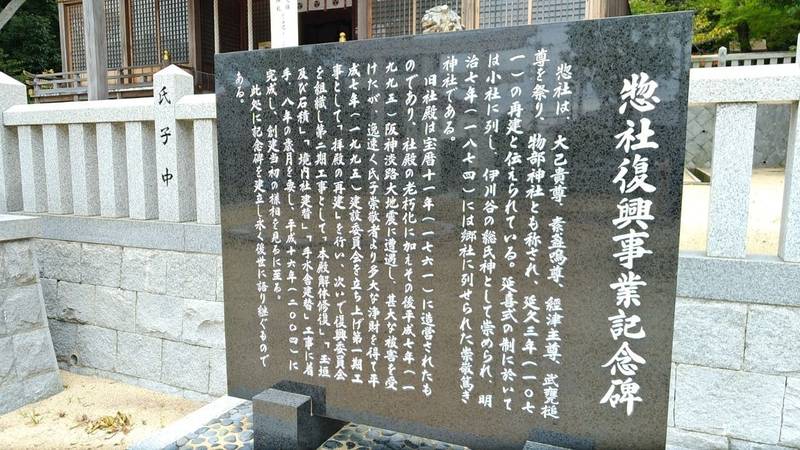 惣社復興事業記念碑
惣社は、大己貴尊、素盞嗚尊、経津主尊、武甕槌
尊を祭り、物部神社とも称され、延久三年(一〇七
一)の再建と伝えられている。延喜式の制に於いて
は小社に列し、伊川谷の総氏神として崇められ、明
治七年(一八七四)には郷社に列せられた崇敬篤き
神社である。
旧社殿は宝暦十一年(一七六一)に造営されたも
のであり、社殿の老朽化に加えその後平成七年(一
九九五)阪神淡路大地震に遭遇し、甚大な被害を受
けたが、逸速く氏子崇敬者より多大な浄財を得て平
成七年(一九九五)建設委員会を立ち上げ第一期工
事として「拝殿の再建」を行い、次いで復興委員会
を組織し第二期工事として「本殿解体修復」、「玉垣
及び石積」、「境内社建替」、「手水舎建替」工事に着
手、八年の歳月を要し、平成十六年(二〇〇四)に
完成し、創建当初の様相を見るに至る。
此処に記念碑を建立し永く後世に語り継ぐもので
ある。
氏子中